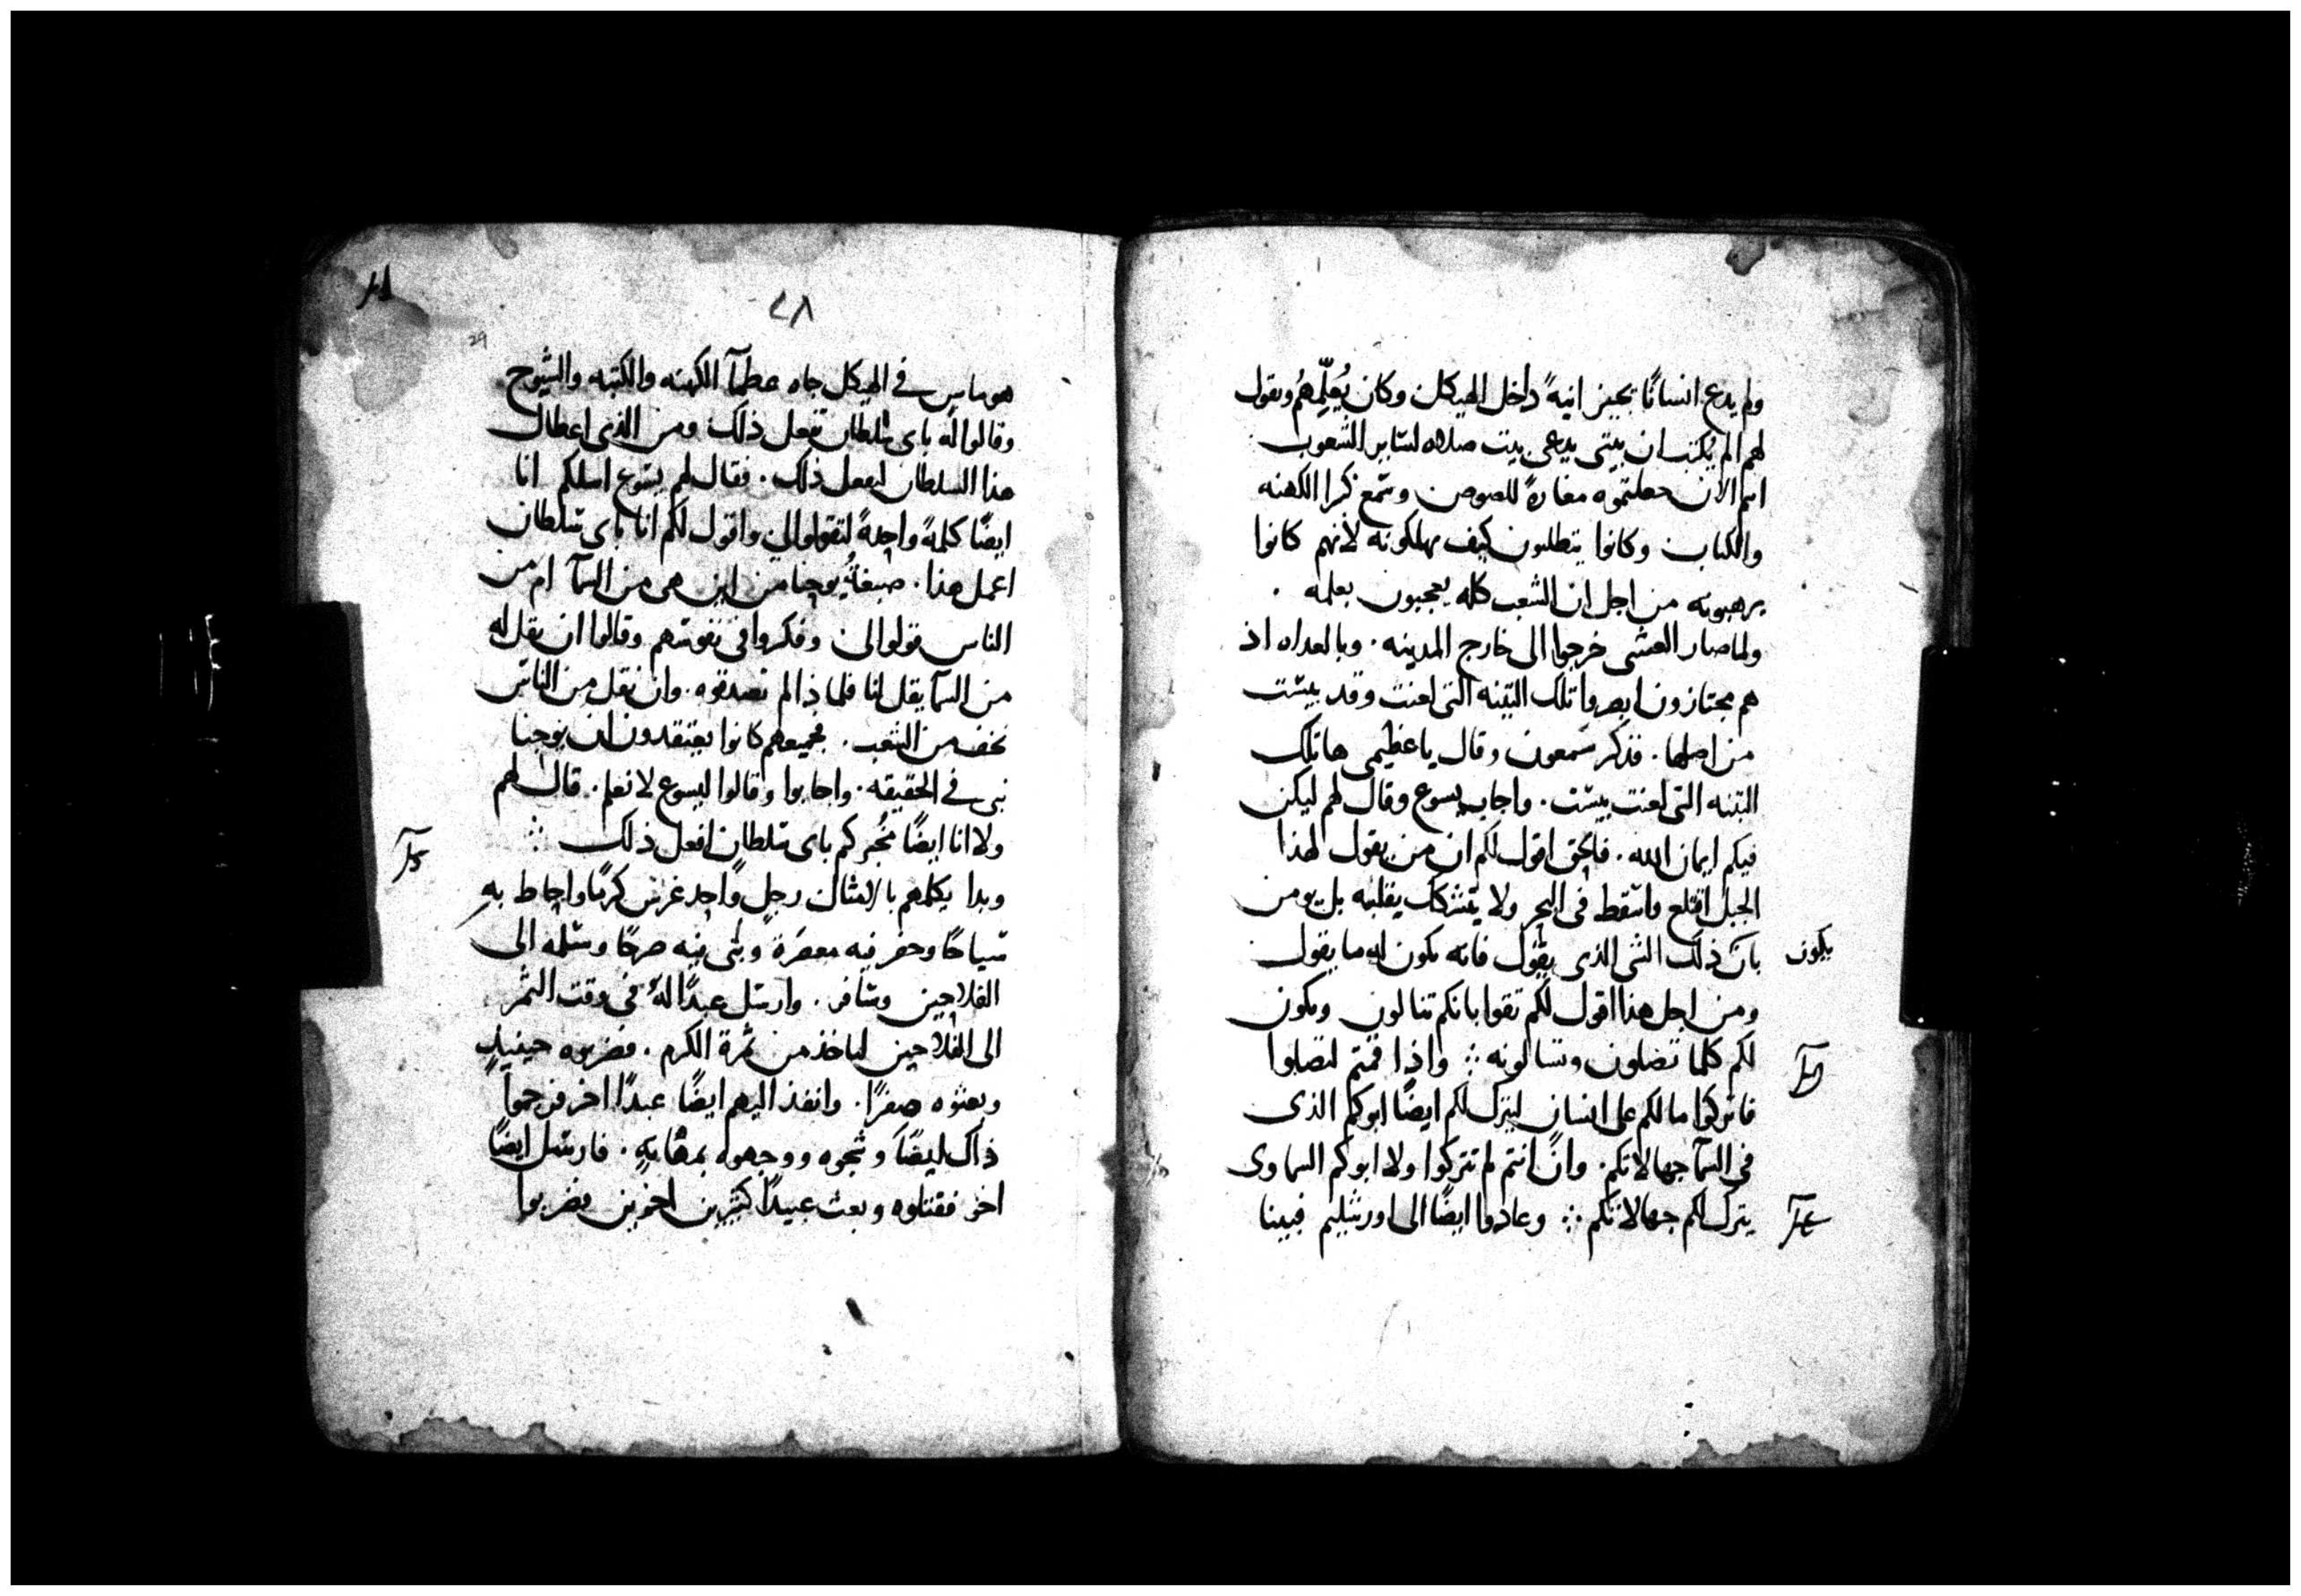 ولم يدع انسانًا يجيز انيةً داخل الهيكل وكان يُعلّمِهُم ويقول
لهم الم يُكتب ان بيتى يدعى بيت صلاه لساير الشعوب
انتم الان جعلتموه مغارةً للصوص وسمع كبرا الكهنه
والكتاب وكانوا يتطلبون كيف يهلكونه لانهم كانوا
يرهبونه من اجل ان الشعب كله يعجبون بعلمه .
ولما صار العشى خرجوا الى خارج المدينه . وبالغداه اذ
هم مجتازون ابصروا تلك التينه التى لعنت وقد يبست
من اصلها . فذكر سمعون وقال يا عظيمى ها تلك
التينه التى لعنت يبست . واجاب يسوع وقال لهم ليكن
فيكم ايمان الله . فالحق اقول لكم ان من يقول لهذا
الجبل اقتلع واسقط فى البحر ولا يتشكك بقلبه بل يومن
بان ذلك الشى الذى يقول فانه يكون له ما يقول
يكون
ومن اجل هذا اقول لكم تقوا بانكم تنالون ويكون
لكم كلما تصلون وتسالونه ∴ واذا قمتم لتصلوا
فاتركوا ما لكم على انسان ليترك لكم ايضًا ابوكم الذى
فى السمآ جهالاتكم . وان انتم لم تتركوا ولا ابوكم السماوى
يترك لكم جهالاتكم ∴ وعادوا ايضًا الى اورشليم فبينا
٢٨
29
هو ماس فى الهيكل جاه عظمآ الكهنه والكتبه والشيوخ
وقالوا له باى سلطان تفعل ذلك ومن الذى اعطاك
هذا السلطان لتفعل ذلك . فقال لهم يسوع اسلكم انا
ايضًا كلمةً واحدةً لتقولوا لى واقول لكم انا باى سلطان
اعمل هذا . صبغةُ يوحنا من اين هى من السمآ ام من
الناس قولوا لى وفكروا فى نفوسهم وقالوا ان نقل له
من السمآ يقل لنا فلماذا لم تصدقوه . وان نقل من الناس
نخف من الشعب . فجميعهم كانوا يعتقدون ان يوحنا
نبى فى الحقيقه . واجابوا وقالوا ليسوع لا نعلم . قال لهم
ولا انا ايضًا مُخبركم باى سلطان افعل ذلك ∴
وبدا يكلمهم بالامثال رجل واحد غرس كرمًا واحاط به
سياجًا وحفر فيه معصرة وبنى فيه صرحًا وسلمه الى
الفلاحين وسافر . وارسل عبدًا لهُ فى وقت الثمر
الى الفلاحين لياخذ من ثمرة الكرم . فضربوه حينيذٍ
وبعثوه صفرًا . وانفذ اليهم ايضًا عبدًا اخر فرجموا
ذاك ايضًا وشجوه ووجهوه بمهانةٍ . فارسل ايضًا
اخر فقتلوه وبعث عبيدًا كثيرين اخرين فضربوا